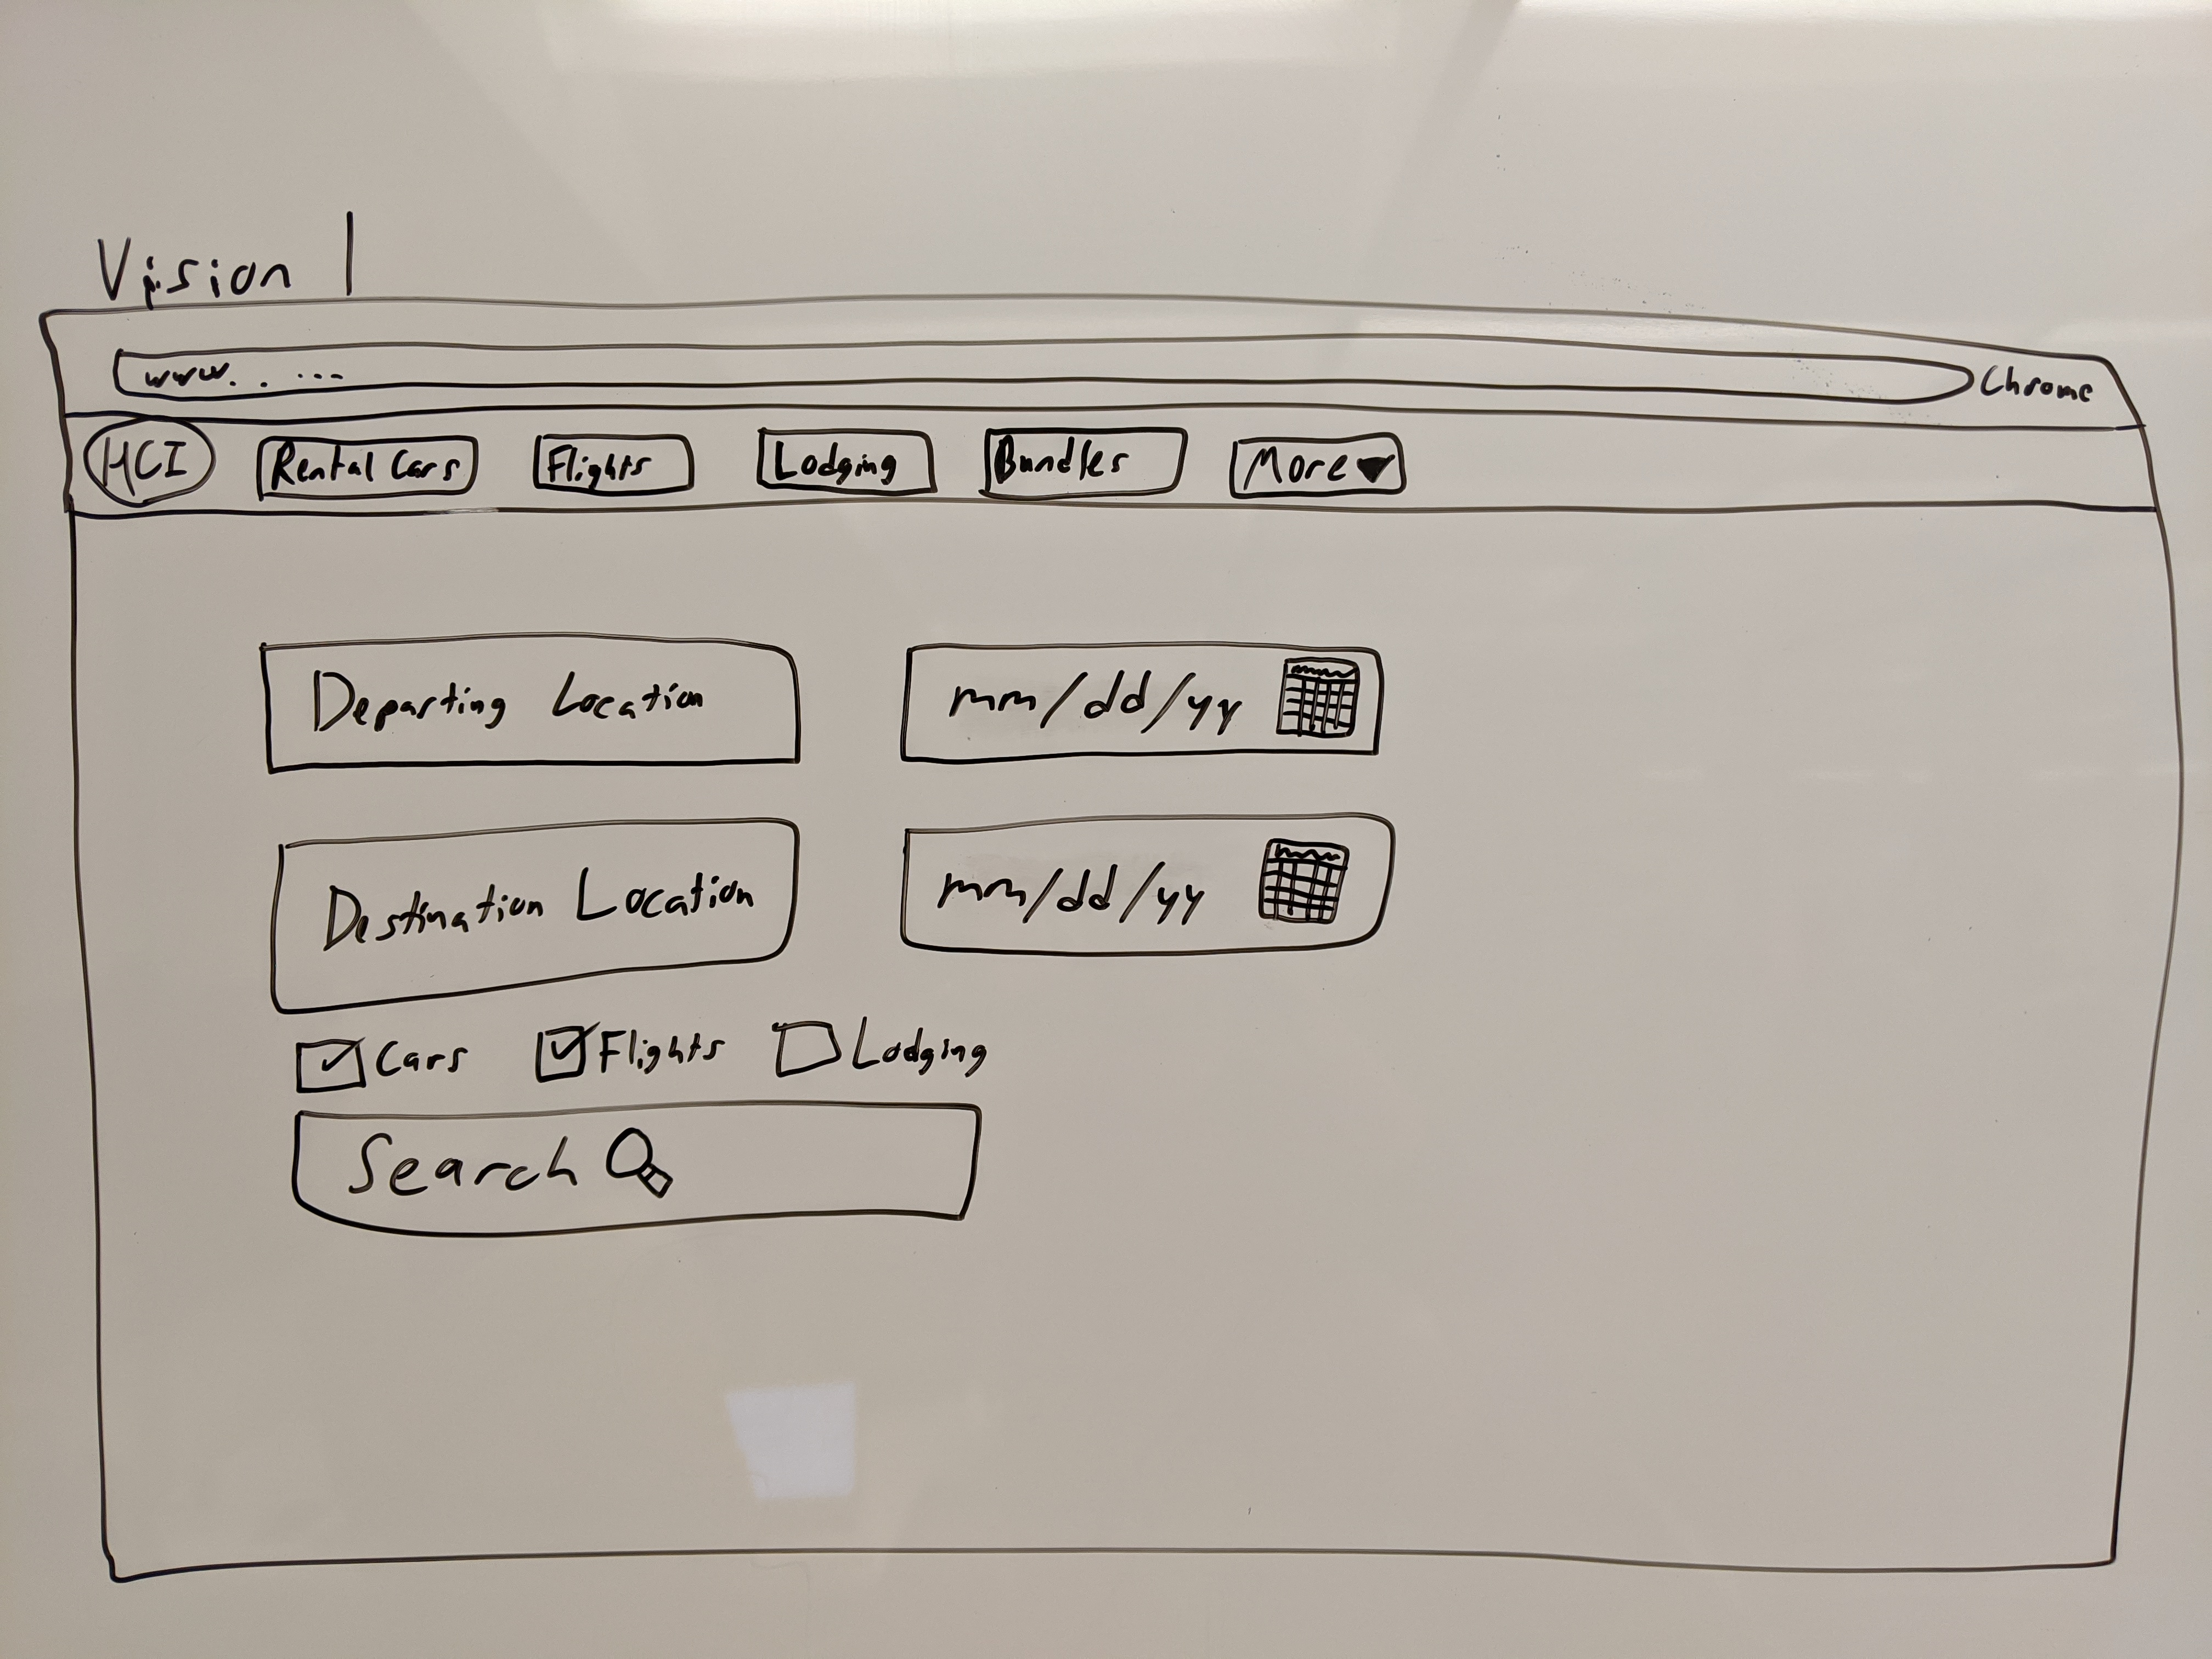 Vision 1
www. . ...
Chrome
HCI Rental Cars Flights Lodging Bundles More
Departing Location mm/dd/yy
Destination Location mm/dd/yy
Cars Flights Lodging
Search